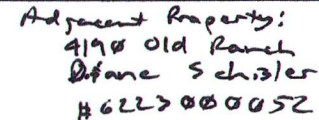 Adjacent Property:
4190 Old Ranch
Diane Schisler
#6223000052